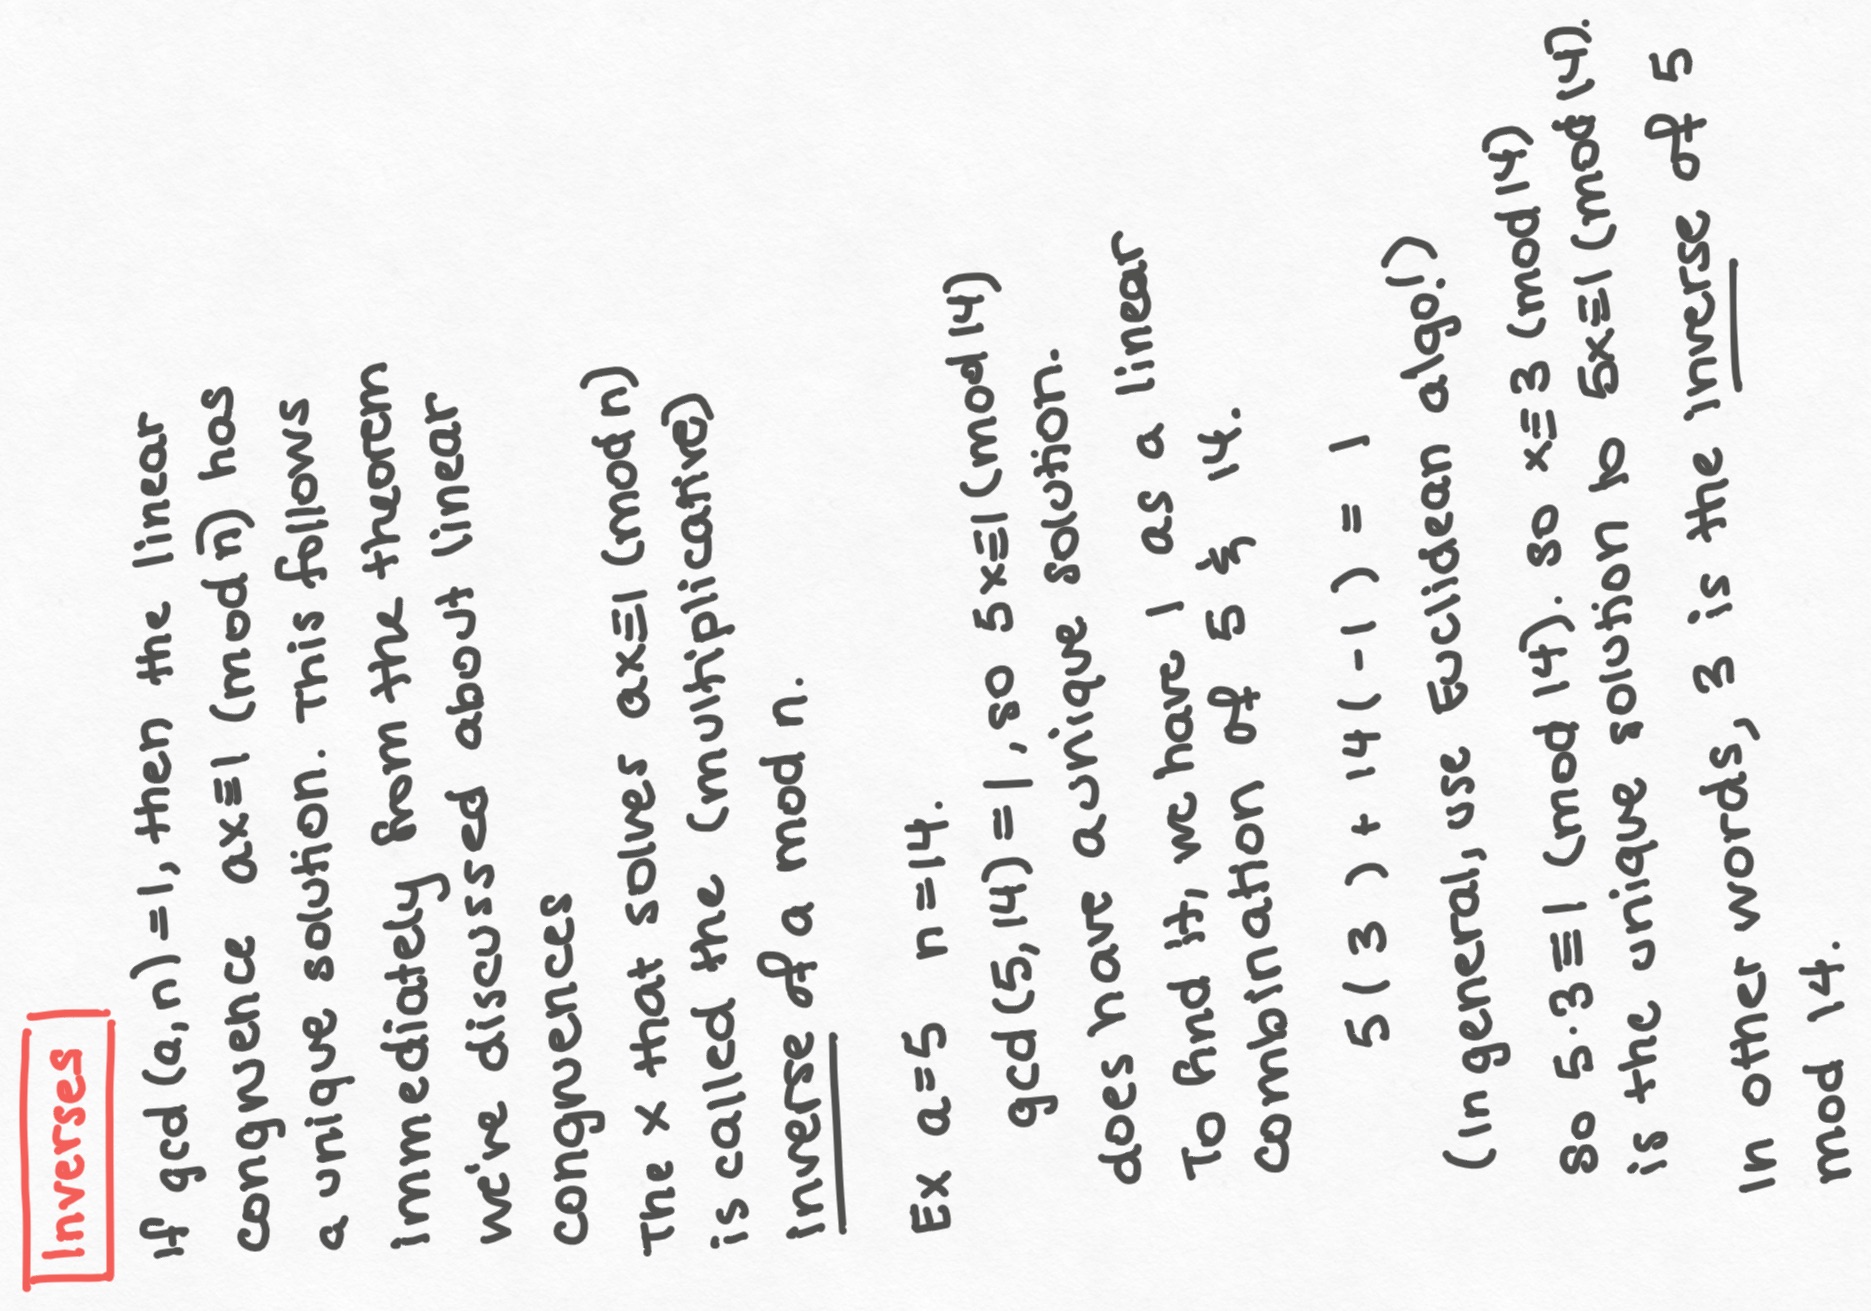 Inverses
If gcd (a, n) = 1, then the linear
congruence ax≡1 (mod n) has
a unique solution. This follows
immediately from the theorem
we've discussed about linear
congruences
The x that solves ax≡1 (mod n)
is called the (multiplicative)
inverse of a mod n.
Ex a=5 n=14.
gcd (5, 14) = 1, so 5x≡1 (mod 14)
does have a unique solution.
To find it, we have 1 as a linear
combination of 5 & 14.
5( 3 ) + 14( -1 ) = 1
(In general, use Euclidean algo!)
So 5·3≡1 (mod 14). So x≡3 (mod 14)
is the unique solution to 5x≡1 (mod 14).
In other words, 3 is the inverse of 5
mod 14.